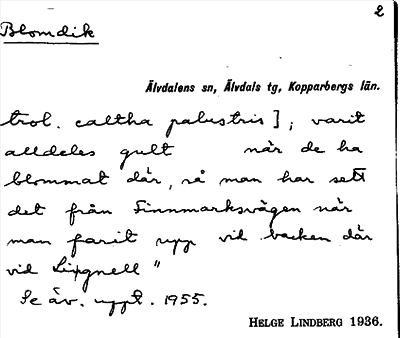 2
Blomdik
Älvdalens sn, Älvdals tg, Kopparbergs län.
trol. caltha palustris]; varit
alldeles gult när de ha
blommat där, så man har sett
det från Finnmarksvägen när
man farit upp vid backen där
vid Lixgnell"
Se äv. uppt. 1955.
HELGE LINDBERG 1936.